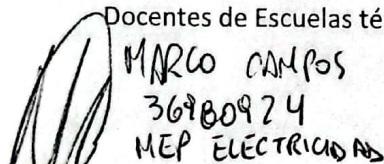 Docentes de Escuelas té
MARCO CAMPOS
36980924
MEP ELECTRICIDAD